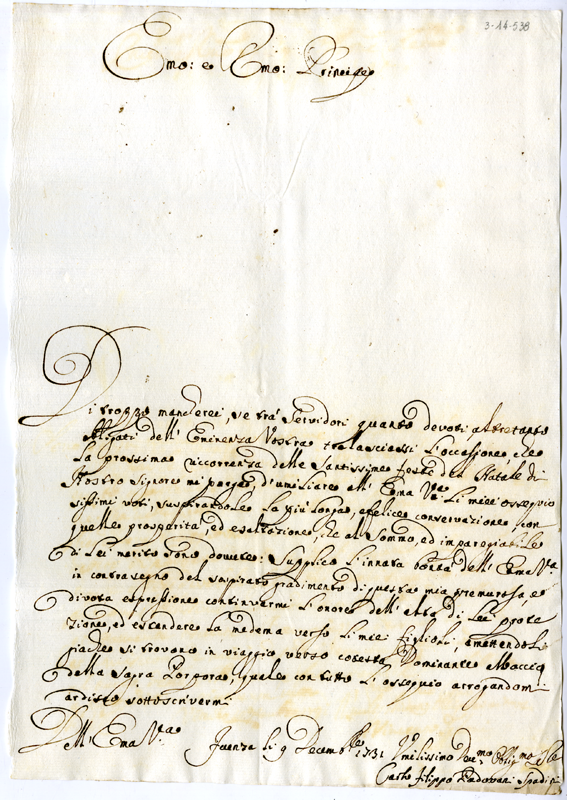 3-14-538
Emo: e Rmo: Principe
Di troppo mancherei, se trà Servidori quanto devoti altretanto
obligati dell' Eminenza Vostra tralasciassi l'occassione che
la prossima riccorrenza delle Santissime feste del Natale di
Nostro Signore mi porge, d'umiliare all' Ema Vra li miei ossequio
sissimi voti, suspirandole la più longa, e felice conservazione con
quelle prosperità, ed esaltazione, che al sommo, ed imparegiabile
di Lei merito sono dovute: Supplico l'innata bontà dell' Ema Va
in contrasegno del sospirato gradimento di questa mia premurosa, e
divota espressione continuarmi l'onore dell' alta di Lei prote
zione, ed estendere la medema verso li miei figlioli, amettendoli
giache si trovono in viaggio verso cotesta Dominante al baccio
della Sagra Porpora, quale con tutto l'ossequio arogandomi
ardisco sottoscrivermi
Dell' Ema Va
Faenza li 9 Decembre 1731
Carlo Filippo Padovani Spadi